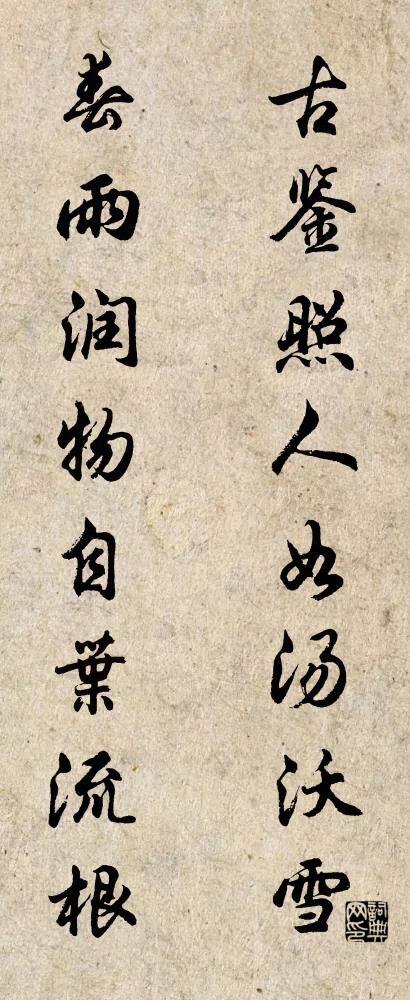 古鉴照人如汤沃雪
春雨润物自叶流根
詞典网印